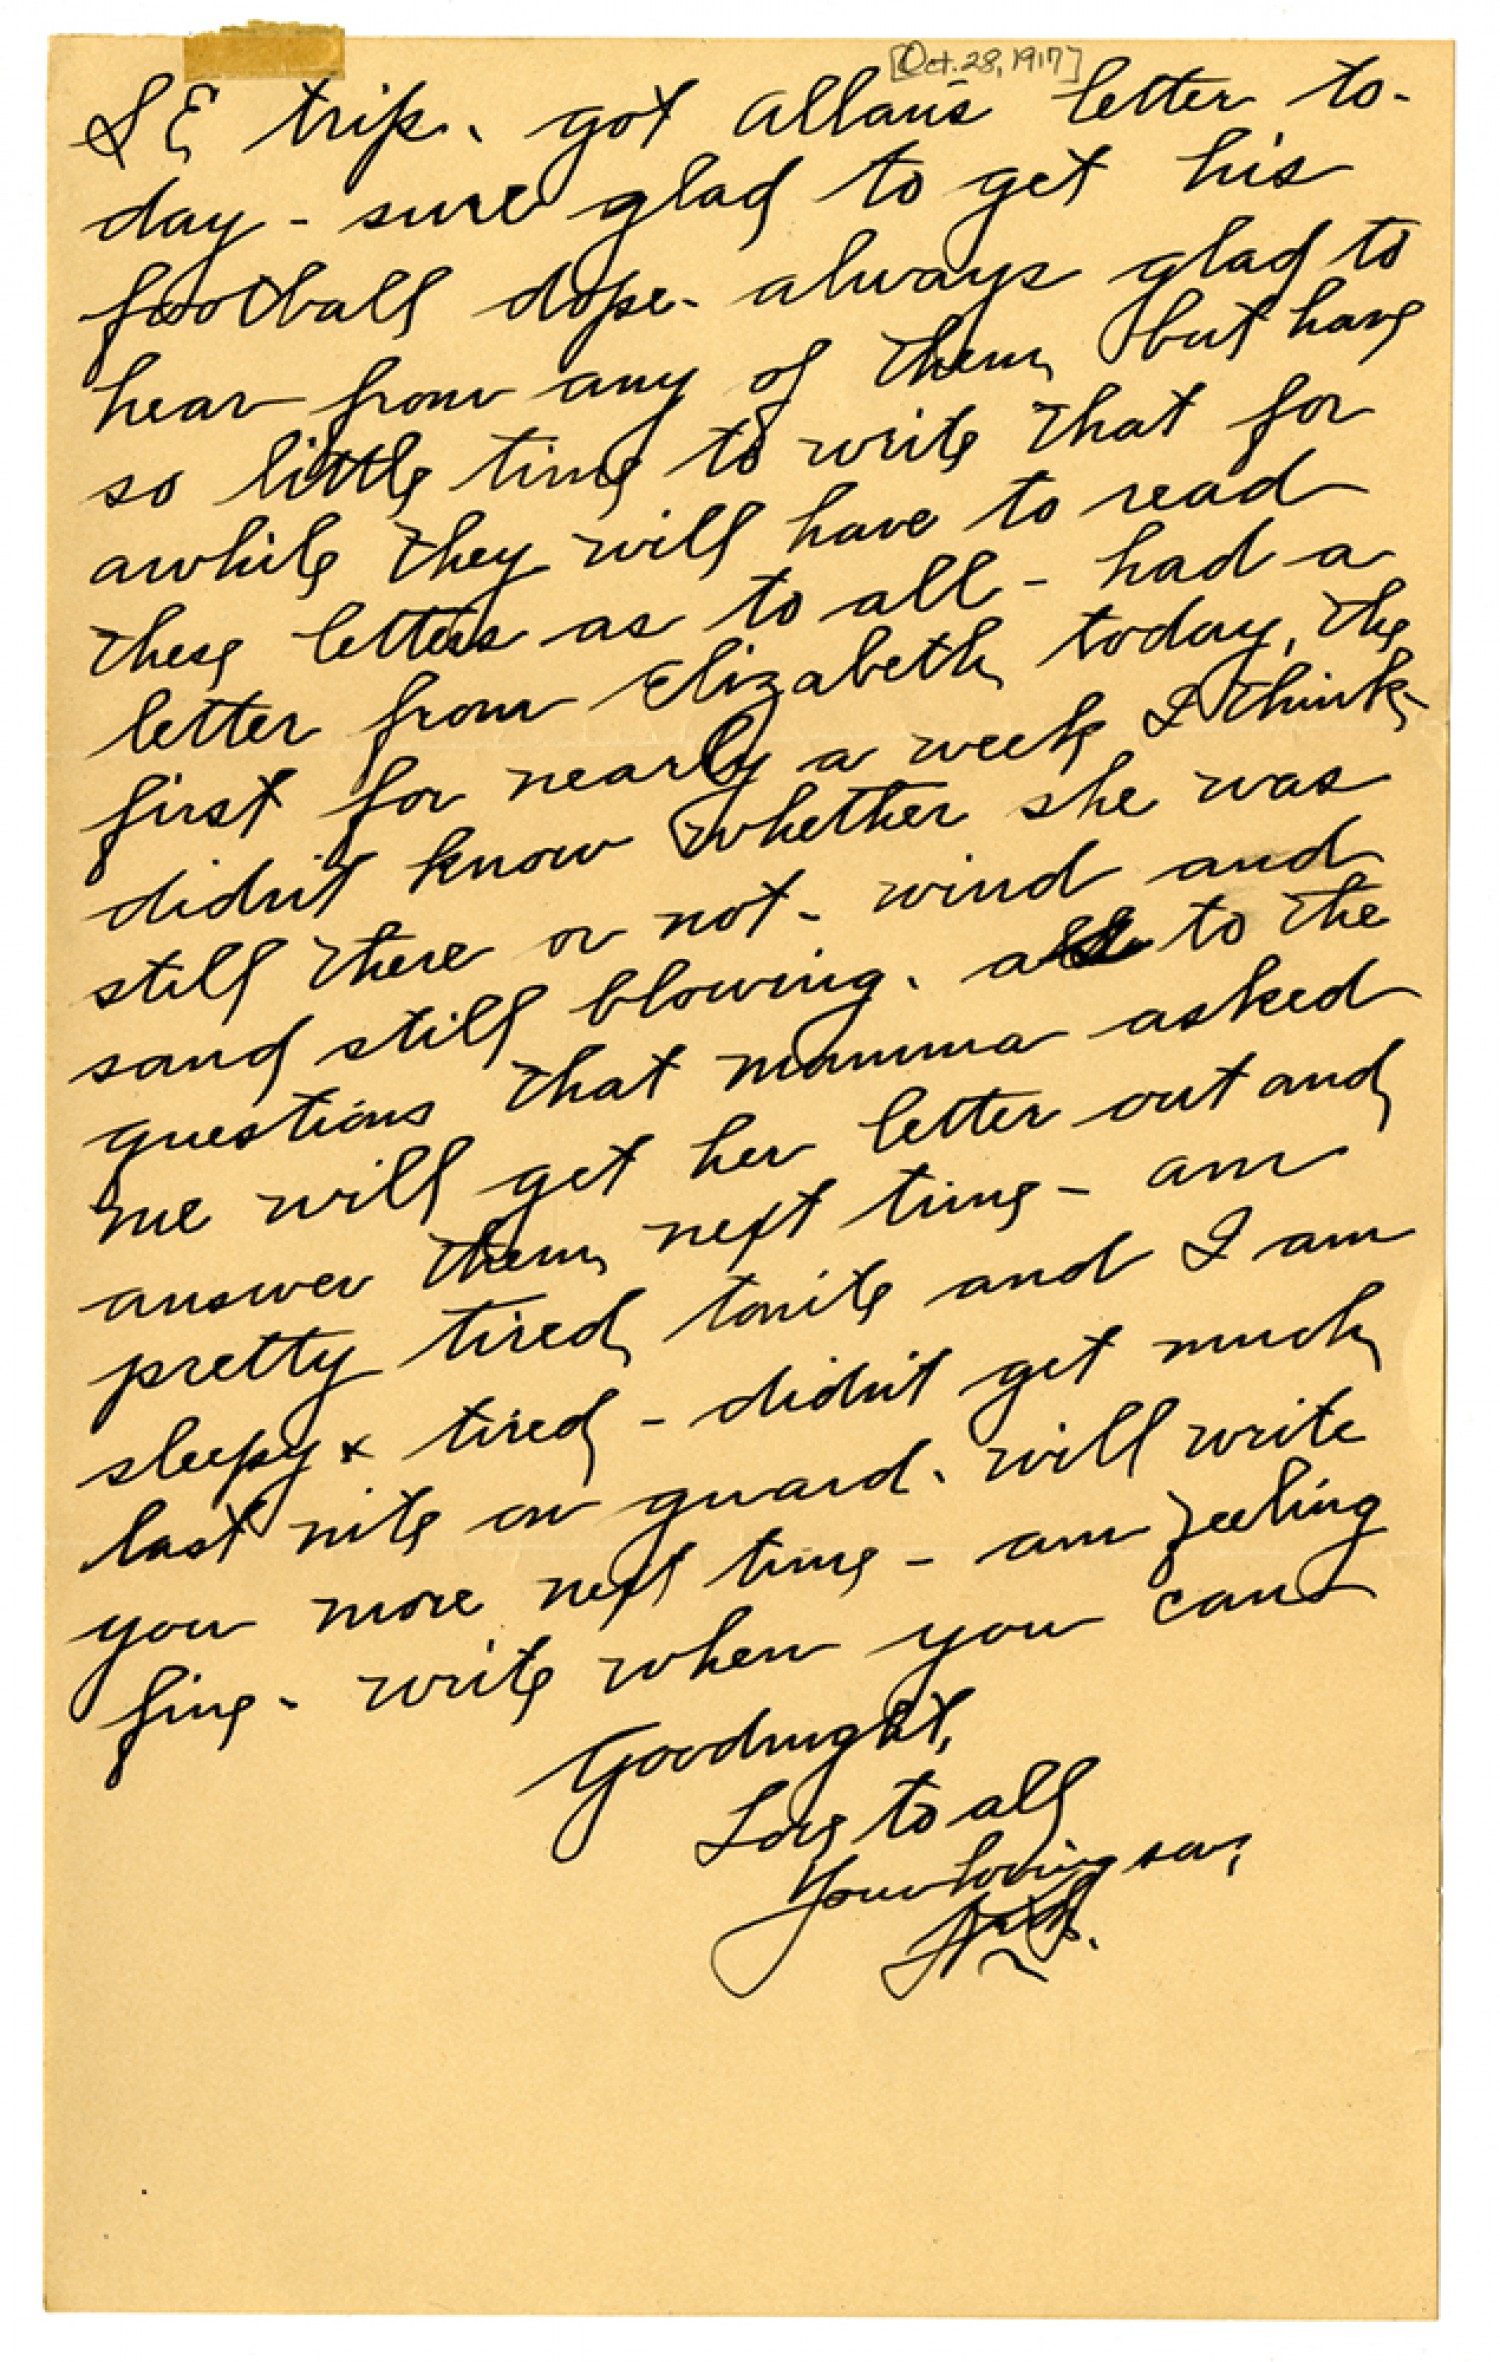 [Oct. 28, 1917]
S E trip. got Allan's letter to-
day - sure glad to get his
football dope - always glad to
hear from any of them but have
so little time to write that for
awhile they will have to read
these letters as to all - had a
letter from Elizabeth today, the
first for nearly a week I think -
didn't know whether she was
still there or not - wind and
sand still blowing. as to the
questions that mamma asked
me will get her letter out and
answer them next time - am
pretty tired tonite and I am
sleepy & tired - didn't get much
last nite on guard. will write
you more next time - am feeling
fine - write when you can
Goodnight,
Love to all
Your loving son,